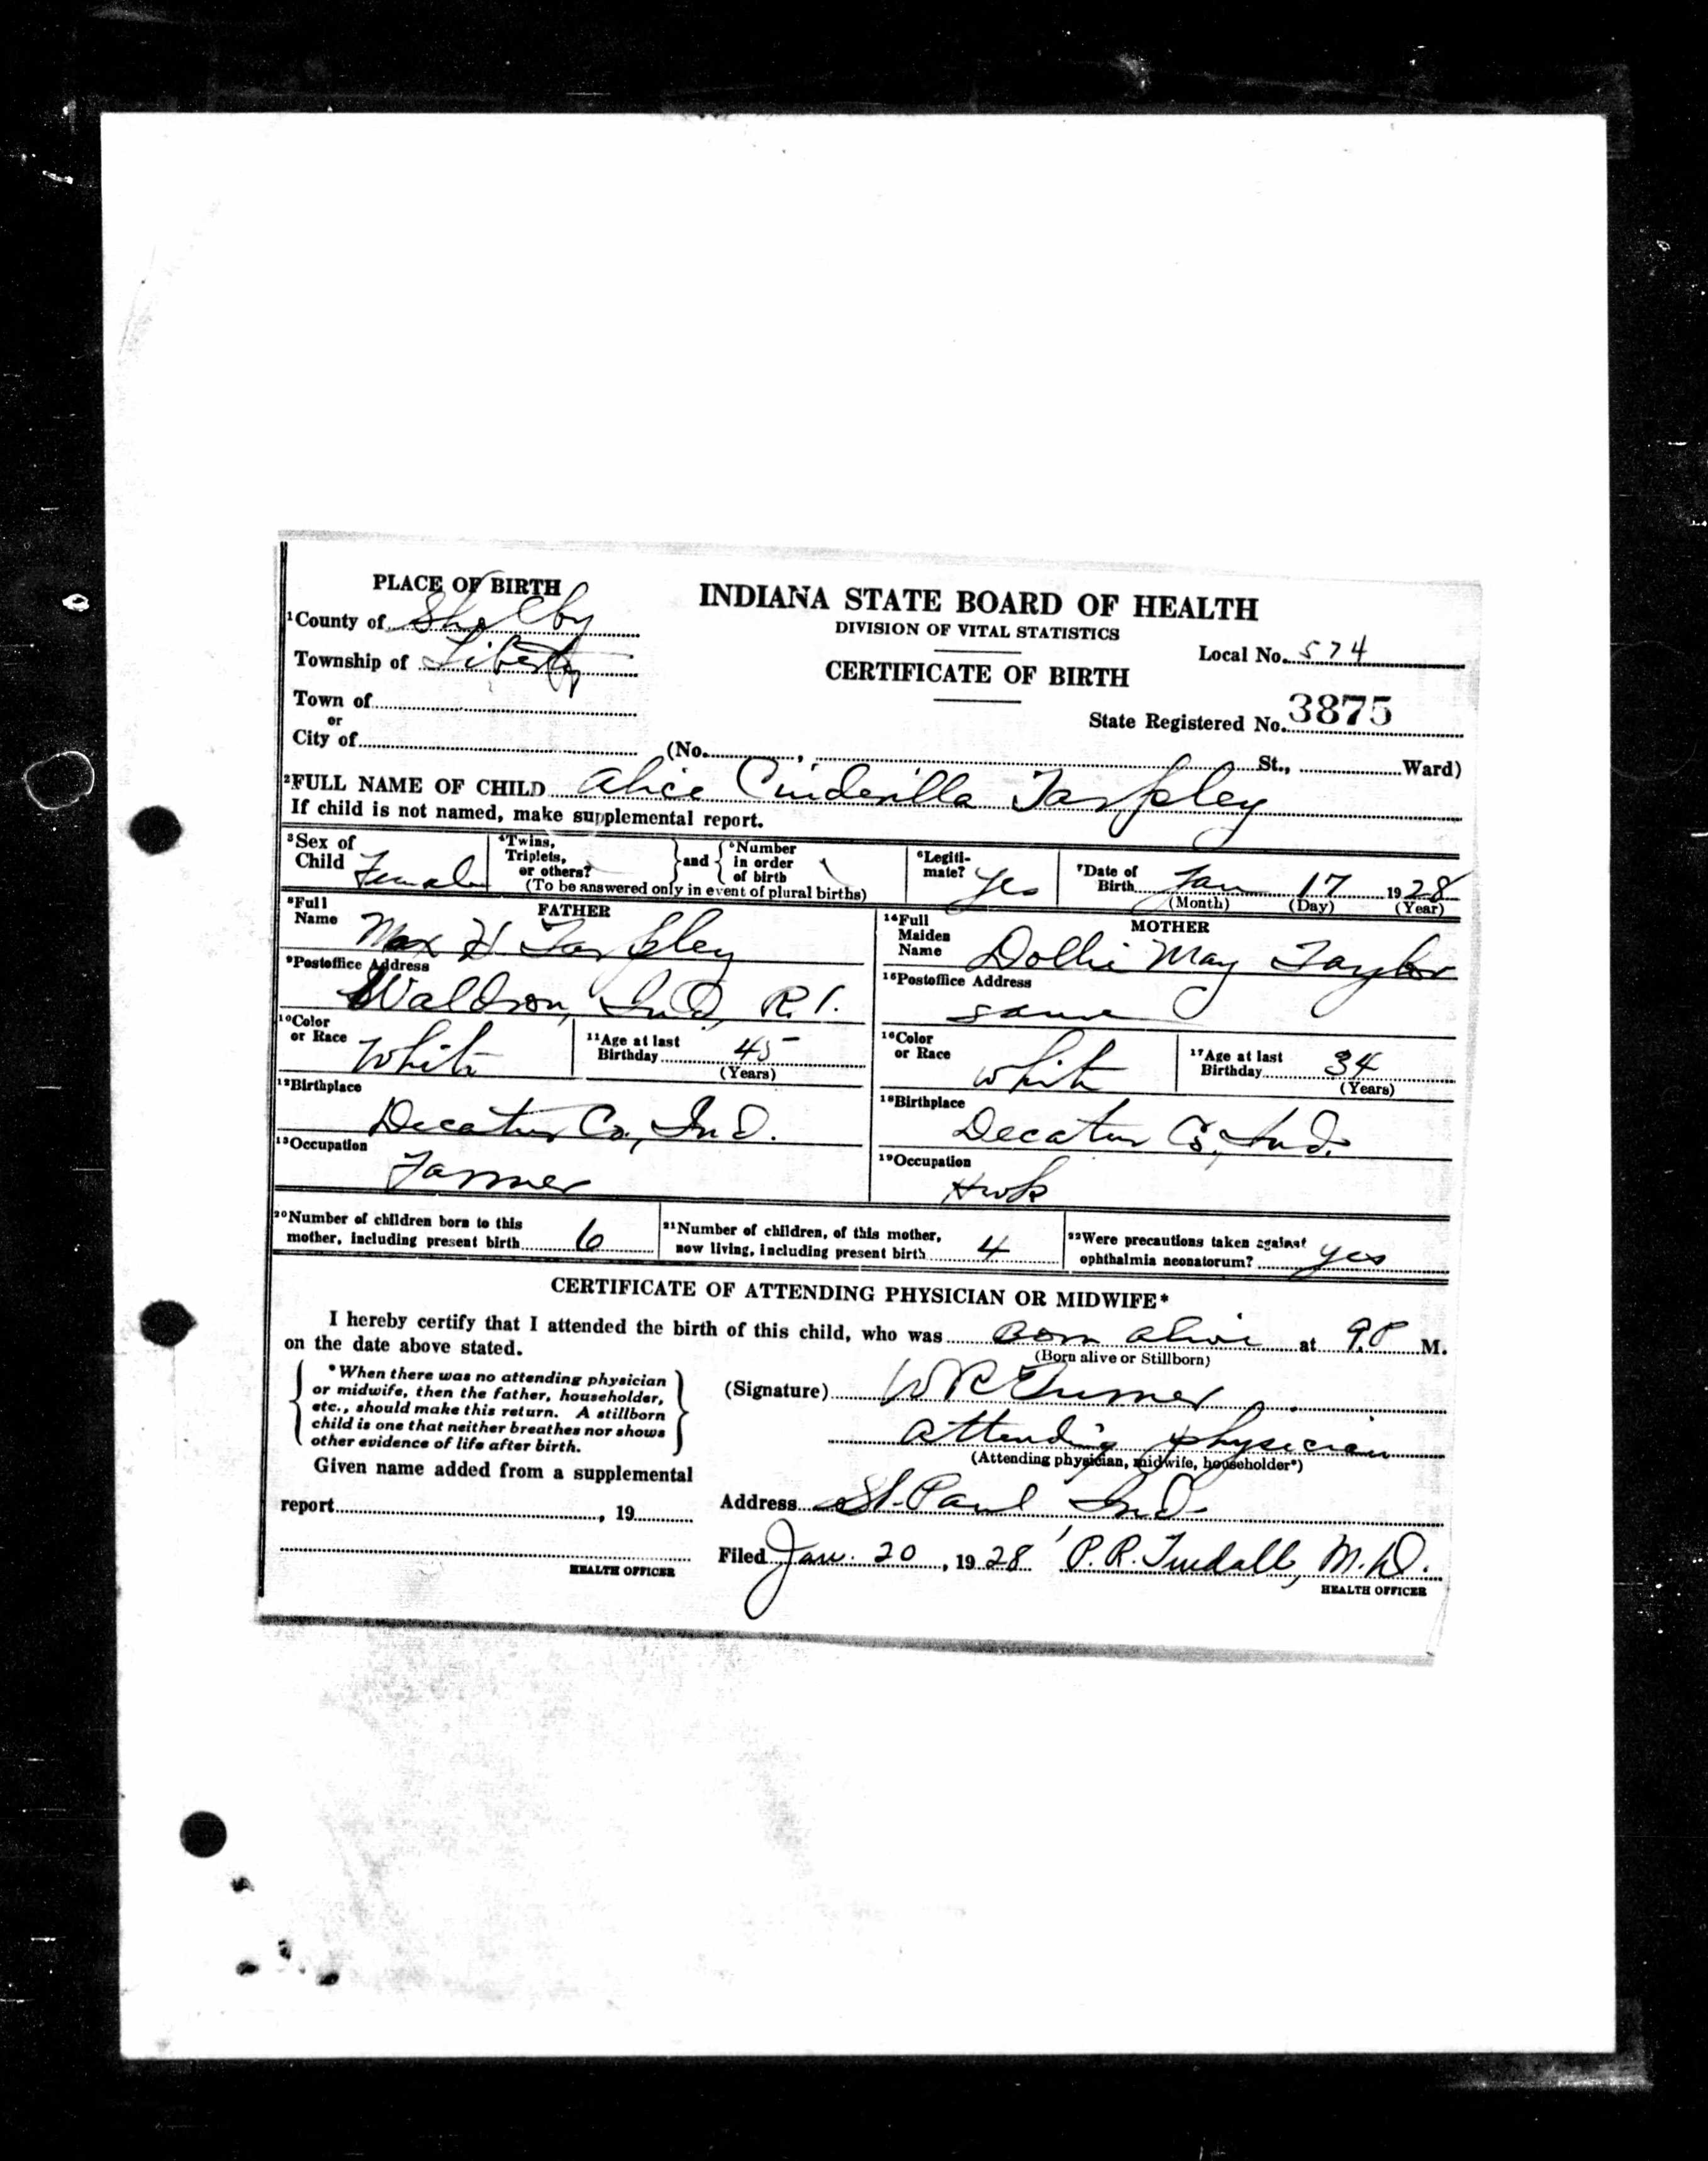 PLACE OF BIRTH
INDIANA STATE BOARD OF HEALTH
DIVISION OF VITAL STATISTICS
CERTIFICATE OF BIRTH
1County of Shelby
Township of Liberty
Town of
or
City of
Local No. 574
State Registered No. 3875
(No. , St., Ward)
2FULL NAME OF CHILD Alice Cinderilla Tarpley
If child is not named, make supplemental report.
3Sex of Child Female
4Twins, Triplets, or others? and 5Number in order of birth
(To be answered only in event of plural births)
6Legitimate? yes
7Date of Birth Jan 17 1928
(Month) (Day) (Year)
FATHER
8Full Name Max H Tarpley
9Postoffice Address
Waldron, Ind, R.1.
10Color or Race White
11Age at last Birthday 45
(Years)
12Birthplace
Decatur Co., Ind.
13Occupation
Farmer
MOTHER
14Full Maiden Name Dollie May Taylor
15Postoffice Address
same
16Color or Race White
17Age at last Birthday 34
(Years)
18Birthplace
Decatur Co., Ind.
19Occupation
Hwk
20Number of children born to this mother, including present birth 6
21Number of children, of this mother, now living, including present birth 4
22Were precautions taken against ophthalmia neonatorum? yes
CERTIFICATE OF ATTENDING PHYSICIAN OR MIDWIFE*
I hereby certify that I attended the birth of this child, who was Born alive at 9P M.
on the date above stated.
(Born alive or Stillborn)
*When there was no attending physician
or midwife, then the father, householder,
etc., should make this return. A stillborn
child is one that neither breathes nor shows
other evidence of life after birth.
(Signature) W R Turner
Attending physician
(Attending physician, midwife, householder*)
Given name added from a supplemental
report , 19
HEALTH OFFICER
Address St. Paul Ind.
Filed Jan. 20, 1928 P. R. Tindall, M.D.
HEALTH OFFICER